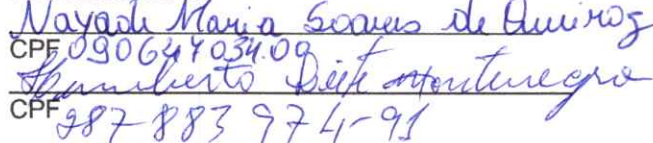 Nayade Maria Soares de Queiroz
CPF 090647034.09
Humberto Leite Montenegro
CPF 287-883 974-91